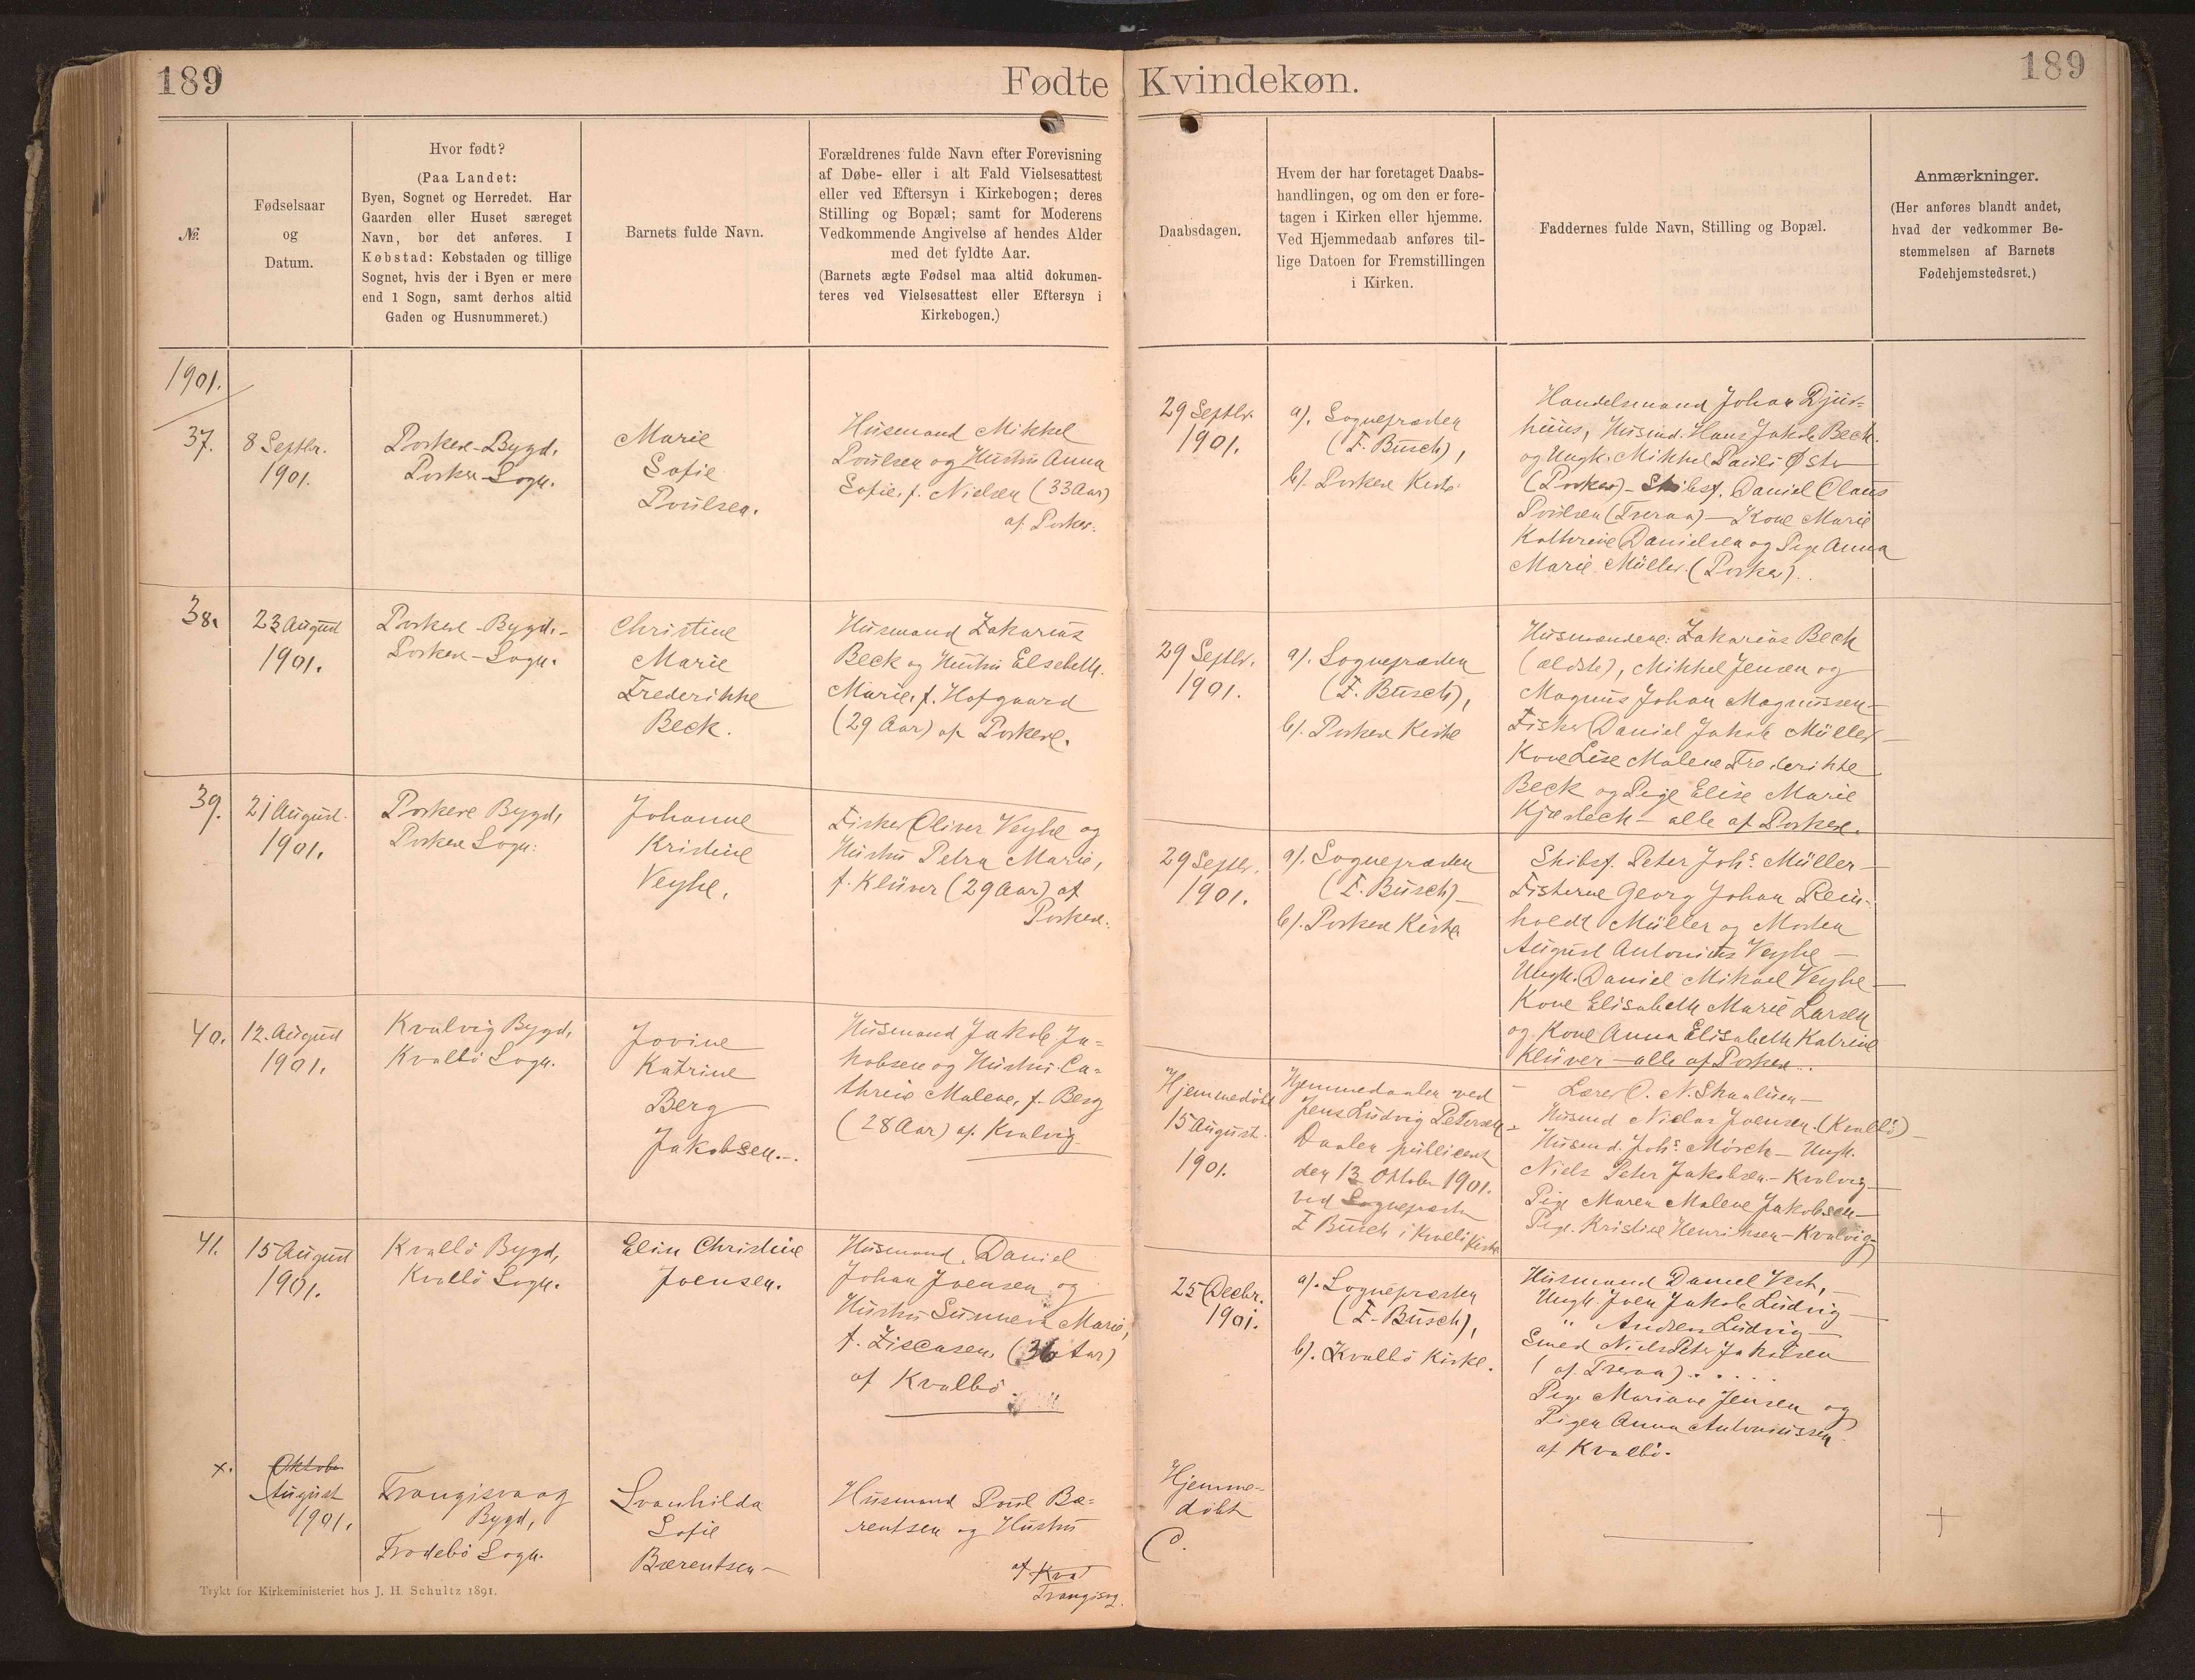 189
Fødte
Kvindekøn.
189
№
Fødselsaar
og
Datum.
Hvor født?
(Paa Landet:
Byen, Sognet og Herredet. Har
Gaarden eller Huset særeget
Navn, bør det anføres. I
Købstad: Købstaden og tillige
Sognet, hvis der i Byen er mere
end 1 Sogn, samt derhos altid
Gaden og Husnummeret.)
Barnets fulde Navn.
Forældrenes fulde Navn efter Forevisning
af Døbe- eller i alt Fald Vielsesattest
eller ved Eftersyn i Kirkebogen; deres
Stilling og Bopæl; samt for Moderens
Vedkommende Angivelse af hendes Alder
med det fyldte Aar.
(Barnets ægte Fødsel maa altid dokumen-
teres ved Vielsesattest eller Eftersyn i
Kirkebogen.)
Daabsdagen.
Hvem der har foretaget Daabs-
handlingen, og om den er fore-
tagen i Kirken eller hjemme.
Ved Hjemmedaab anføres til-
lige Datoen for Fremstillingen
i Kirken.
Faddernes fulde Navn, Stilling og Bopæl.
Anmærkninger.
(Her anføres blandt andet,
hvad der vedkommer Be-
stemmelsen af Barnets
Fødehjemstedsret.)
1901.
37.
8 Septbr.
1901.
Porkere-Bygd,
Porkere-Sogn.
Marie
Sofie
Poulsen.
Husmand Mikkel
Poulsen og Hustru Anna
Sofie, f. Nielsen (33 Aar)
af Porkere.
29 Septbr.
1901.
a). Sognepræsten
(F. Busch),
b). Porkere Kirke.
Handelsmand Johan Djur-
huus, Husmd. Hans Jakob Beck
og Ungk. Mikkel Pauli Øster
(Porkere) - Skibsf. Daniel Claus
Poulsen (Tveraa) - Kone Marie
Kathrine Danielsen og Pige Anna
Marie Müller (Porkere).
38.
23 August
1901.
Porkere-Bygd.-
Porkere-Sogn.
Christine
Marie
Frederikke
Beck.
Husmand Zakarias
Beck og Hustru Elsebeth
Marie, f. Hofgaard
(29 Aar) af Porkere.
29 Septbr.
1901.
a). Sognepræsten
(F. Busch),
b). Porkere Kirke
Husmændene: Zakarias Beck
(ældste), Mikkel Jensen og
Magnus Johan Magnussen -
Fisker Daniel Jakob Müller -
Kone Lise Malene Frederikke
Beck og Pige Elise Marie
Kjærbech - alle af Porkere.
39.
21 August.
1901.
Porkere Bygd,
Porkere Sogn.
Johanne
Kristine
Veyhe.
Fisker Oliver Veyhe og
Hustru Petra Marie,
f. Klüver (29 Aar) af
Porkere.
29 Septbr.
1901.
a). Sognepræsten
(F. Busch) -
b). Porkere Kirke
Skibsf. Peter Johs. Müller -
Fiskerne Georg Johan Rein-
holdt Müller og Morten
August Antonius Veyhe -
Ungk. Daniel Mikael Veyhe -
Kone Elisabeth Marie Larsen
og Kone Anna Elisabeth Katrine
Klüver - alle af Porkere.
40.
12. August
1901.
Kvalvig Bygd,
Kvalbö Sogn.
Jovine
Katrine
Berg
Jakobsen.
Husmand Jakob Ja-
kobsen og Hustru Ca-
thrine Malene, f. Berg
(28 Aar) af Kvalvig.
Hjemmedöbt
15 August.
1901.
Hjemmedaaben ved
Jens Ludvig Petersen.
Daaben publiceret
den 13 Oktober 1901.
ved Sognepræsten
F Busch i Kvalbö Kirke
Lærer O. N. Skaalum -
Husmd Niclas Joensen (Kvalbö) -
Husmd. Johs. Mörch - Ungk.
Niels Peter Jakobsen - Kvalvig -
Pige Maren Malene Jakobsen -
Pige Kristine Henriksen - Kvalvig
41.
15 August
1901.
Kvalbö Bygd,
Kvalbö Sogn.
Elin Christine
Joensen.
Husmand Daniel
Johan Joensen og
Hustru Sunneva Marie,
f. Ziscasen (36 Aar)
af Kvalbö.
25 Decbr.
1901.
a). Sognepræsten
(F. Busch),
b). Kvalbö Kirke.
Husmand Daniel Vest, -
Ungk Joen Jakob Ludvig -
" Andreas Ludvig -
Smed Niels Peter Jakobsen
(af Tveraa).
Pige Mariane Jensen og
Pigen Anna Antoniussen
af Kvalbö.
x.
Oktober
August
1901.
Trangisvaag
Bygd,
Frodebö Sogn.
Svanhilda
Sofie
Bærentsen
Husmand Poul Bæ-
rentsen og Hustru
af Kva
Trangisvg.
Hjemme-
döbt
+
Trykt for Kirkeministeriet hos J. H. Schultz 1891.